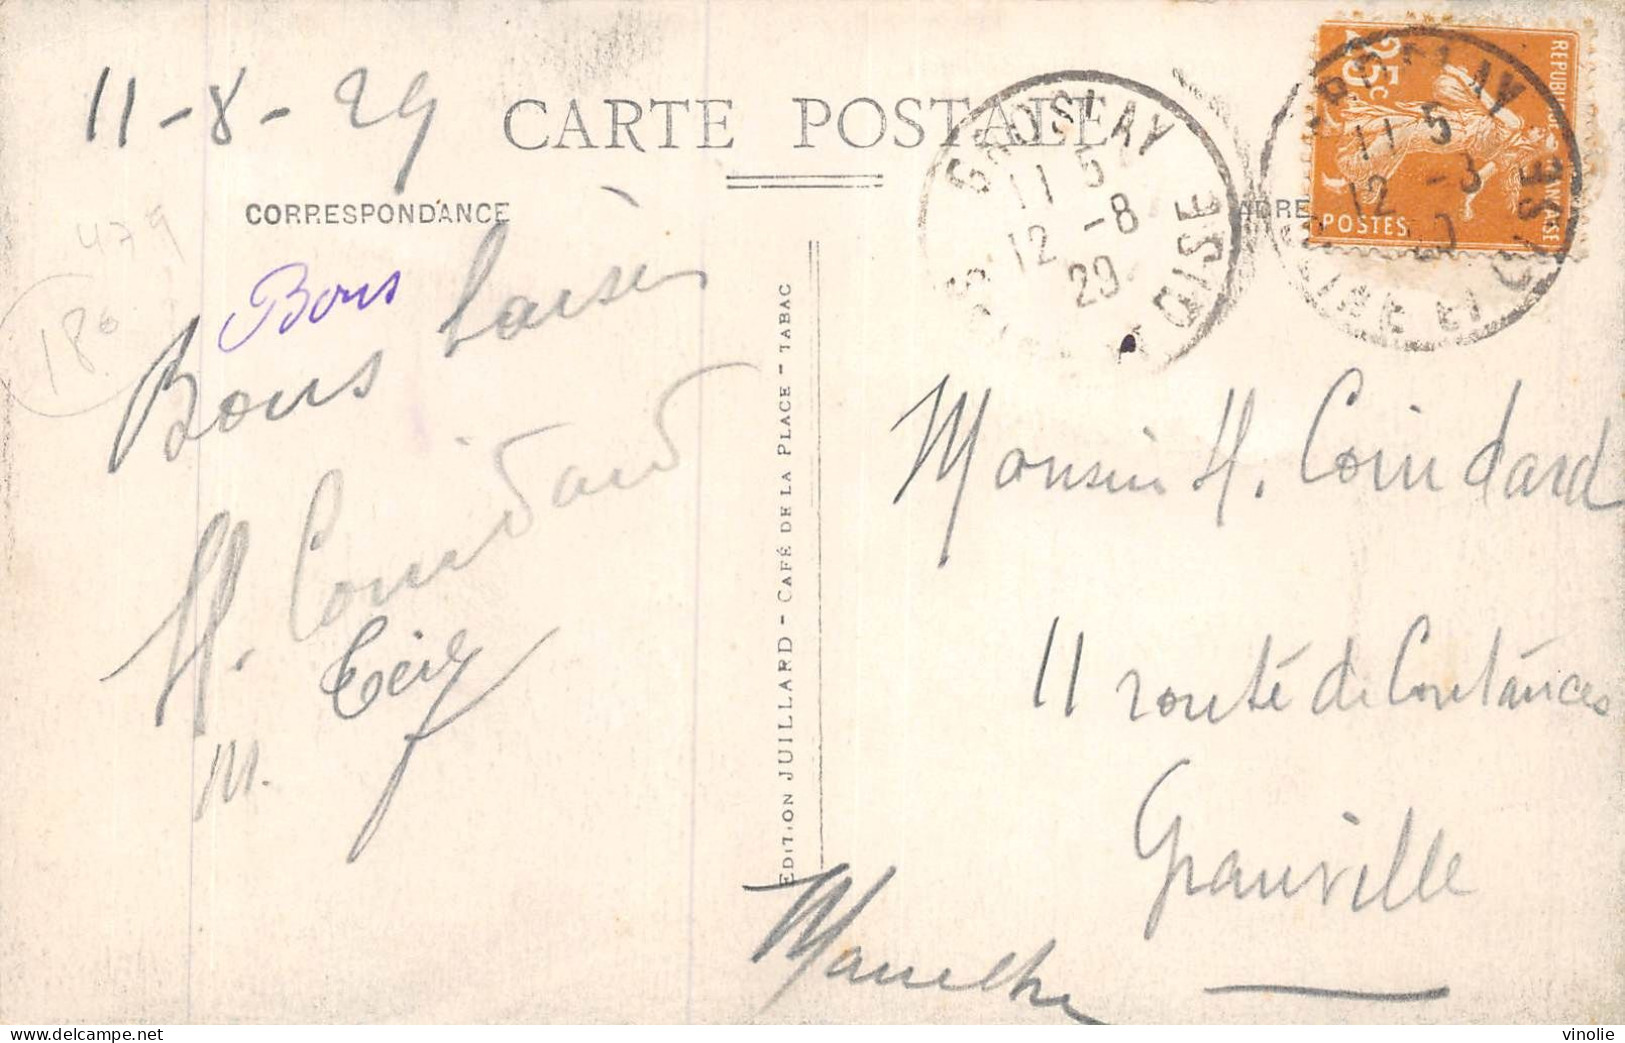 11-8-29
CARTE POSTALE
CORRESPONDANCE
ADRE
479
180
Bons
Bons baisers
H. Coindard
M.
EDITION JUILLARD - CAFÉ DE LA PLACE - TABAC
GROSLAY
11 5
12 -8
29
OISE
25c
REPUBLIQUE FRANÇAISE
POSTES
GROSLAY
11 5
12 -8
29
SEINE ET OISE
Monsieur H. Coindard
11 route de Coutances
Granville
Manche
vinolie